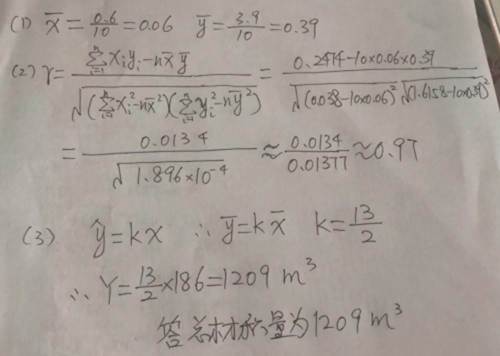 (1) x̄ = 0.6/10 = 0.06 ȳ = 3.9/10 = 0.39
(2) r = (∑ⁿᵢ₌₁ xᵢyᵢ - nx̄ȳ)/√((∑ⁿᵢ₌₁ xᵢ² - nx̄²)(∑ⁿᵢ₌₁ yᵢ² - nȳ²)) = (0.2474-10×0.06×0.39)/(√(0.038-10×0.06)² √(1.6158-10×0.39)²)
= 0.0134/√(1.896×10⁻⁴) ≈ 0.0134/0.01377 ≈ 0.97
(3) ŷ = kx ∴ ȳ = kx̄ k = 13/2
∴ Y = 13/2 × 186 = 1209 m³
答总材积量为1209 m³